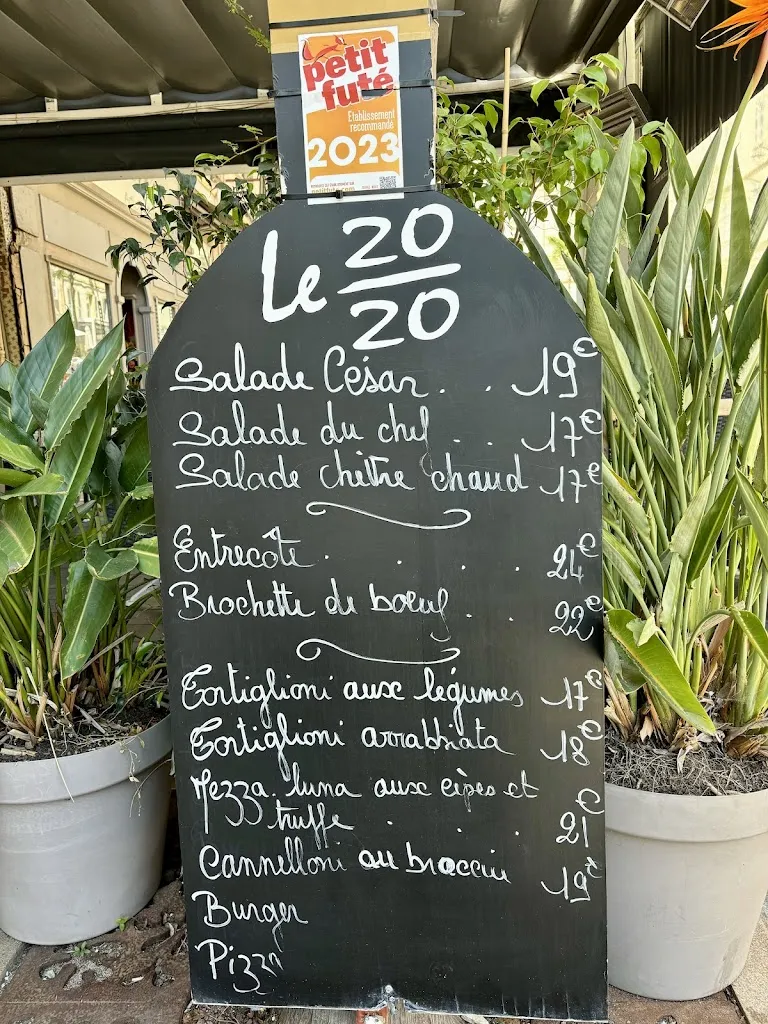 petit
futé
Etablissement
recommandé
2023
Le 20
20
Salade César . . 19€
Salade du chef . . . 17€
Salade chèvre chaud 17€
Entrecôte . . . . 24€
Brochette de boeuf . . 22€
Tortiglioni aux légumes 17€
Tortiglioni arrabbiata 18€
Mezza luna aux cèpes et
truffe . . . . 21€
Cannelloni au brocciu 19€
Burger
Pizza